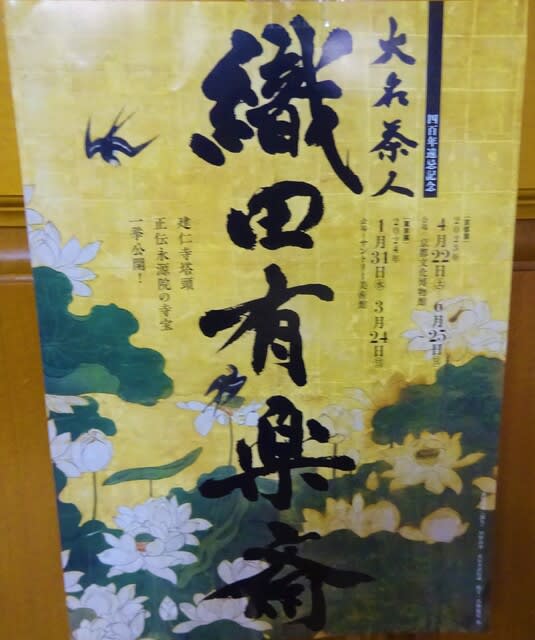 四百年遠忌記念
大名茶人
織田有楽斎
【京都展】
2023年
4月22日㊏
6月25日㊐
会場：京都文化博物館
【東京展】
2024年
1月31日㊌
3月24日㊐
会場：サントリー美術館
建仁寺塔頭
正伝永源院の寺宝
一挙公開！